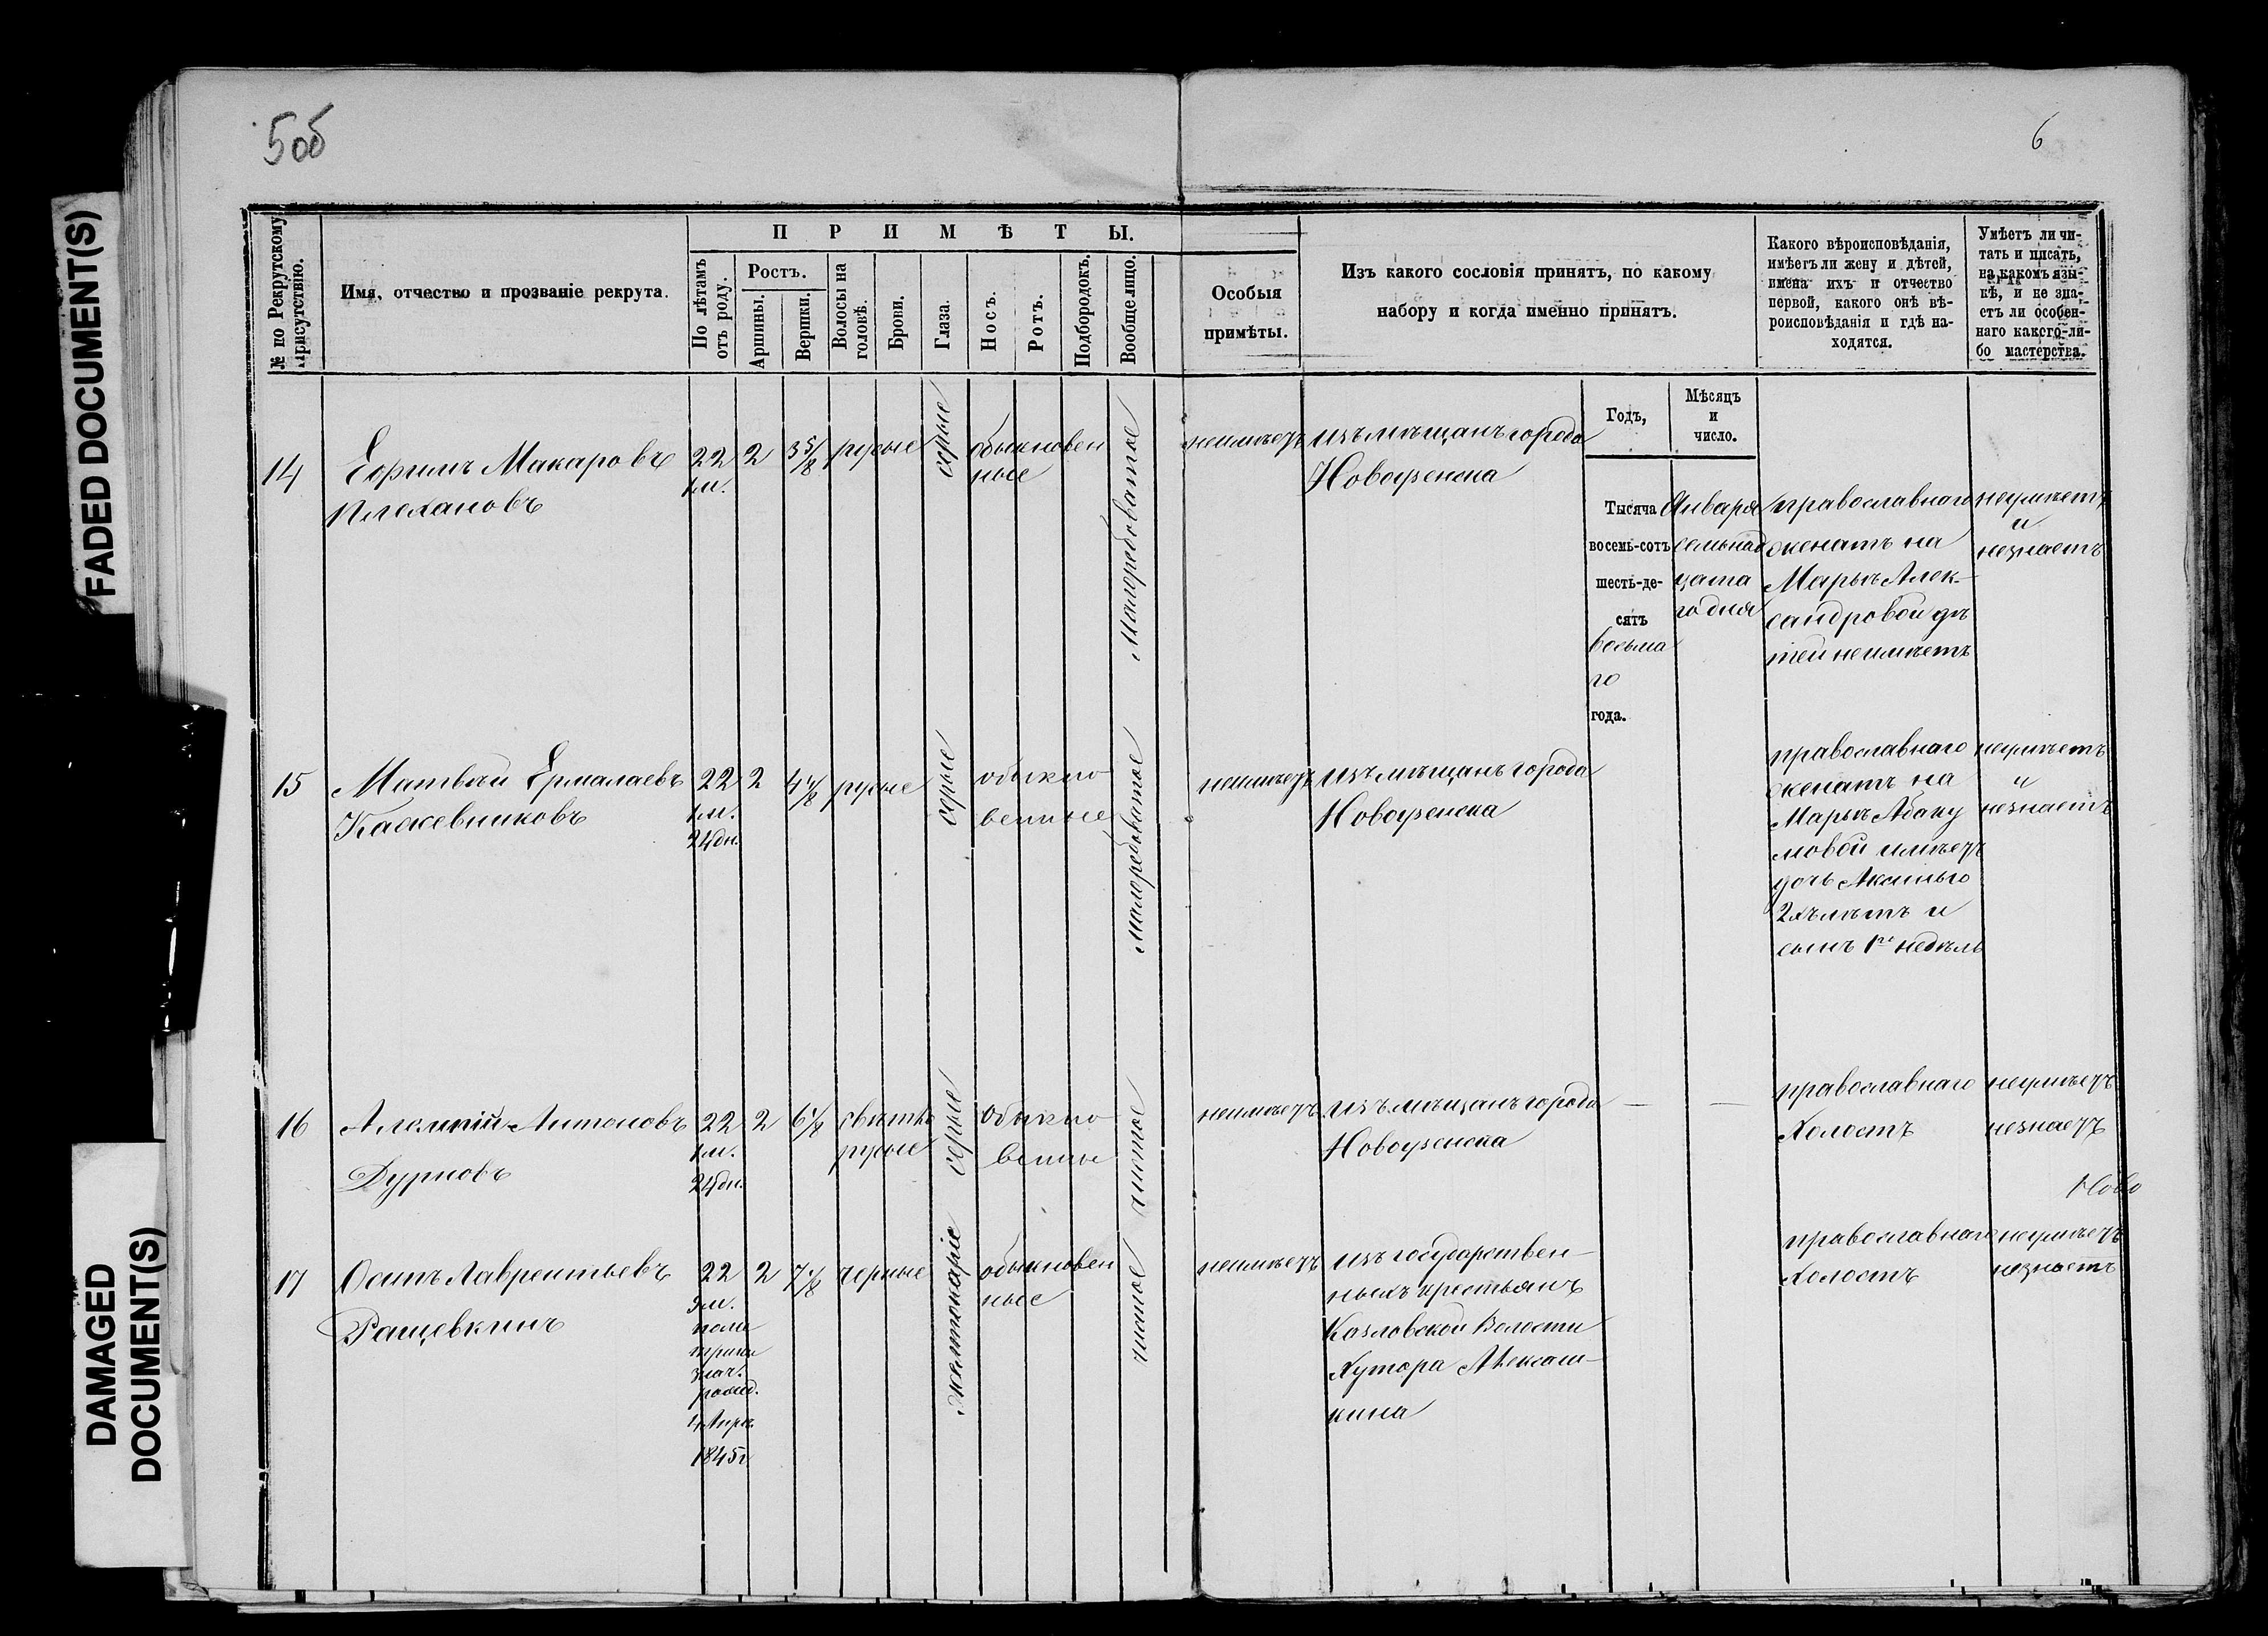 5об
6
FADED DOCUMENT(S)
DAMAGED
DOCUMENT(S)
№ по Рекрутскому присутствію.
Имя, отчество и прозваніе рекрута.
ПРИМѢТЫ.
По лѣтамъ отъ роду.
Ростъ.
Аршины.
Вершки.
Волосы на головѣ.
Брови.
Глаза.
Носъ.
Ротъ.
Подбородокъ.
Вообще лицо.
Особыя
примѣты.
Изъ какого сословія принятъ, по какому
набору и когда именно принятъ.
Какого вѣроисповѣданія,
имѣетъ ли жену и дѣтей,
имена ихъ и отчество
первой, какого онѣ вѣ-
роисповѣданія и гдѣ на-
ходятся.
Умѣетъ ли чи-
тать и писать,
на какомъ язы-
кѣ, и не зна-
етъ ли особен-
наго какого-ли-
бо мастерства.
Годъ,
Мѣсяцъ
и
число.
14
Ефимъ Макаровъ
Плехановъ
22
1 м.
2
3 5/8
русые
серые
обыкновен
ные
малорябоватое
неимѣетъ
изъ мѣщанъ города
Новоузенска
Тысяча
восемь-сотъ
шесть-де-
сятъ
восьма
го
года.
Января
семьнад
цата
го дня
православнаго
женатъ на
Марьѣ Алек-
сандровой дѣ
тей неимѣетъ
неумѣетъ
и
незнаетъ
15
Матвѣй Ермалаевъ
22
1 м.
24 дн.
2
4 1/8
русые
серые
обыкно
венные
малорябоватое
неимѣетъ
изъ мѣщанъ города
Новоузенска
православнаго
женатъ на
Марьѣ Абаку
мовой имѣетъ
дочь Аксинью
2хъ лѣтъ и
сынъ недѣль
неумѣетъ
и
незнаетъ
16
Алексѣй Антоновъ
Дурновъ
22
1 м.
24 дн.
2
6 1/8
свѣтло
русые
серые
обыкно
венны
чистое
неимѣетъ
изъ мѣщанъ города
Новоузенска
—
—
православнаго
Холостъ
неумѣетъ
незнаетъ
Ново
17
Осипъ Лаврентьевъ
22
2
7 1/8
черные
желтокаріе
обыкновен
ные
чистое
рожд.
4 Апрѣ
1845 г
неимѣетъ
изъ государствен-
ныхъ крестьянъ
Козловской Волости
Хутора
православнаго
Холостъ
неумѣетъ
незнаетъ